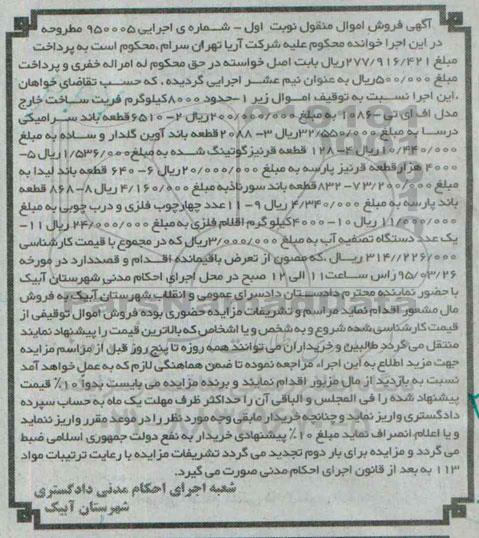 آگهی فروش اموال منقول نوبت اول - شماره ی اجرایی ۹۵۰۰۰۵ مطروحه
در این اجرا خوانده محکوم علیه شرکت آریا تهران سرام.محکوم است به پرداخت
مبلغ ۲۷۷/۹۱۶/۴۲۱ریال بابت اصل خواسته در حق محکوم له امراله خفری و پرداخت
مبلغ ۵۰۰/۰۰۰ریال به عنوان نیم عشر اجرایی گردیده . که حسب تقاضای خواهان
.این اجرا نسبت به توقیف اموال زیر ۱-حدود ۸۰۰۰کیلوگرم فریت ساخت خارج
مدل اف ای تی -۱۰۸۶ به مبلغ ۲۰۰/۰۰۰/۰۰۰ریال ۲- ۶۵۱۰قطعه باند سرامیکی
درسا به مبلغ ۳۲/۵۵۰/۰۰۰ریال ۳- ۲۰۸۸قطعه باند آوین گلدار و ساده به مبلغ
۱۰/۴۴۰/۰۰۰ریال ۴- ۱۲۸ قطعه قرنیز گوتینگ شده به مبلغ۱/۵۳۶/۰۰۰ریال ۵-
۴۰۰۰ هزار قطعه قرنیز پارسه به مبلغ ۲۰/۰۰۰/۰۰۰ریال ۶- ۶۴۰ قطعه باند لیدا به
مبلغ ۷۳/۲۰۰/۰۰۰- ۸۳۲قطعه باند سورناذبه مبلغ ۴/۱۶۰/۰۰۰ریال ۸-۸۶۸ قطعه
باند پارسه به مبلغ ۴/۳۴۰/۰۰۰ریال ۹- ۱۱عدد چهارچوب فلزی و درب چوبی به مبلغ
۱۱/۰۰۰/۰۰۰ریال ۱۰- ۴۰۰۰کیلو گرم اقلام فلزی به مبلغ ۲۴/۰۰۰/۰۰۰ریال ۱۱-
یک عدد دستگاه تصفیه آب به مبلغ ۳/۰۰۰/۰۰۰ریال که در مجموع با قیمت کارشناسی
۳۱۴//۲۲۶/۰۰۰ ریال .که مصون از تعرض باقیمانده اقدام و قصددارد در مورخه
۹۵/۰۳/۲۶راس ساعت۱۱ الی ۱۲ صبح در محل اجرای احکام مدنی شهرستان آبیک
با حضور نماینده محترم دادستان دادسرای عمومی و انقلاب شهرستان آبیک به فروش
مال مشعور اقدام نماید مراسم و تشریفات مزایده حضوری بوده فروش اموال توقیفی از
قیمت کارشناسی شده شروع و به شخص و یا اشخاص که بالاترین قیمت را پیشنهاد نمایند
منتقل می گردد طالبین و خریداران می توانند همه روزه تا پنج روز قبل از مراسم مزایده
جهت مزید اطلاع به این اجراء مراجعه نموده تا ضمن هماهنگی لازم که به عمل خواهد آمد
نسبت به بازدید از مال مزبور اقدام نمایند و برنده مزایده می بایست بدواً ۱۰٪ قیمت
پیشنهاد شده را فی المجلس و الباقی آن را حداکثر ظرف مهلت یک ماه به حساب سپرده
دادگستری واریز نماید و چنانچه خریدار مابقی وجه مورد نظر را در موعد مقرر واریز ننماید
و یا اعلام انصراف نماید مبلغ ۱۰٪ پیشنهادی خریدار به نفع دولت جمهوری اسلامی ضبط
می گردد و مزایده برای بار دوم تجدید می گردد تشریفات مزایده با رعایت ترتیبات مواد
۱۱۳ به بعد از قانون اجرای احکام مدنی صورت می گیرد.
شعبه اجرای احکام مدنی دادگستری
شهرستان آبیک